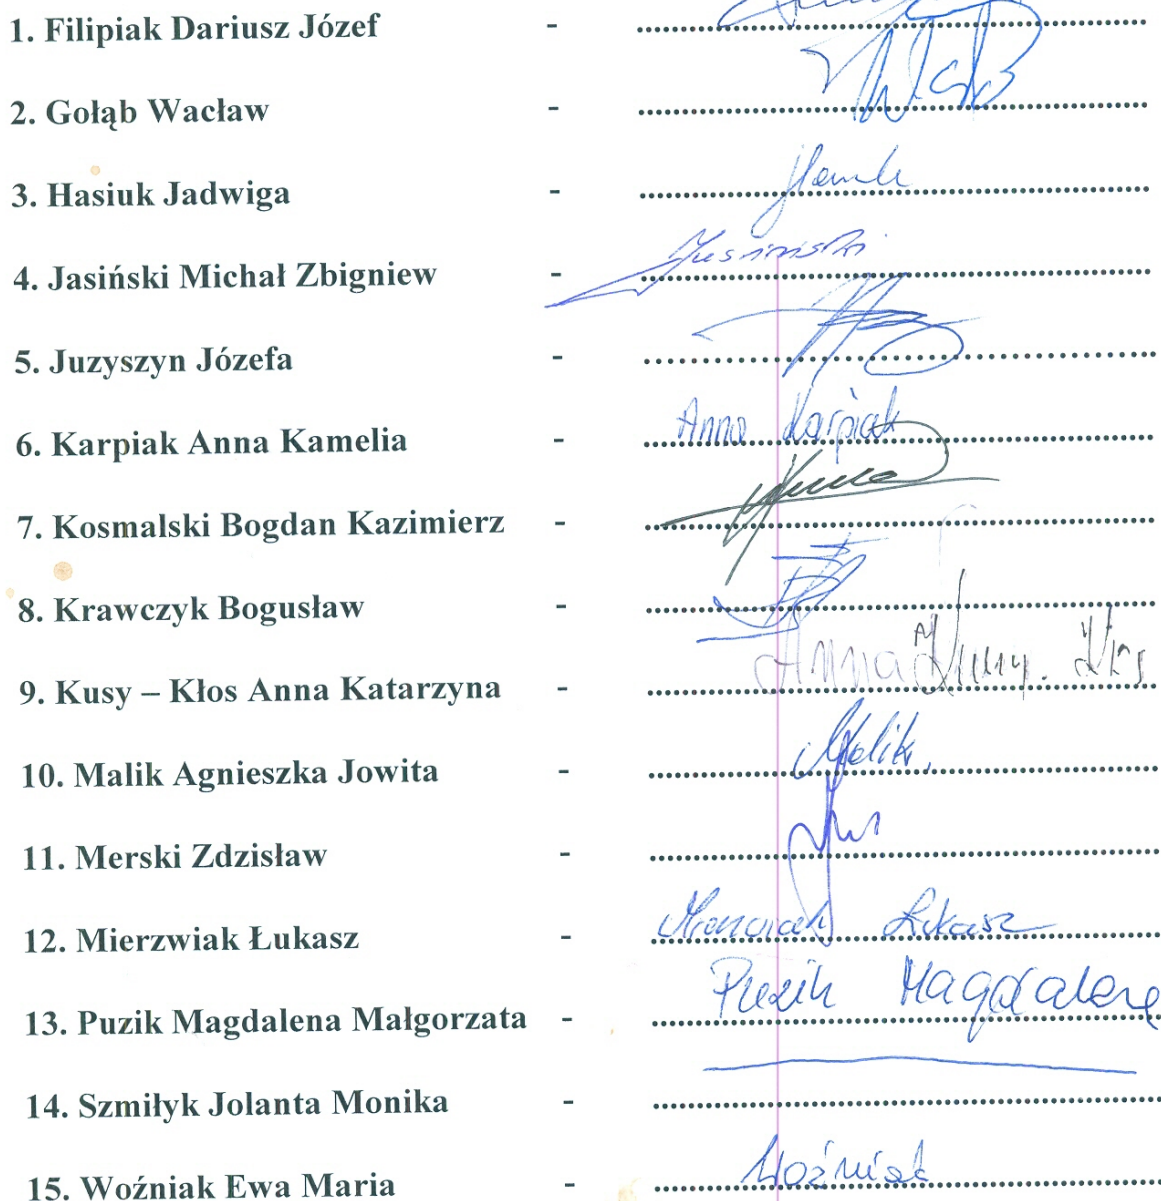 1. Filipiak Dariusz Józef -
2. Gołąb Wacław -
3. Hasiuk Jadwiga -
4. Jasiński Michał Zbigniew - Jasiński
5. Juzyszyn Józefa -
6. Karpiak Anna Kamelia - Anna Karpiak
7. Kosmalski Bogdan Kazimierz -
8. Krawczyk Bogusław -
9. Kusy – Kłos Anna Katarzyna - Anna
10. Malik Agnieszka Jowita - Malik
11. Merski Zdzisław -
12. Mierzwiak Łukasz - Łukasz
13. Puzik Magdalena Małgorzata - Puzik Magdalena
14. Szmiłyk Jolanta Monika -
15. Woźniak Ewa Maria - Woźniak